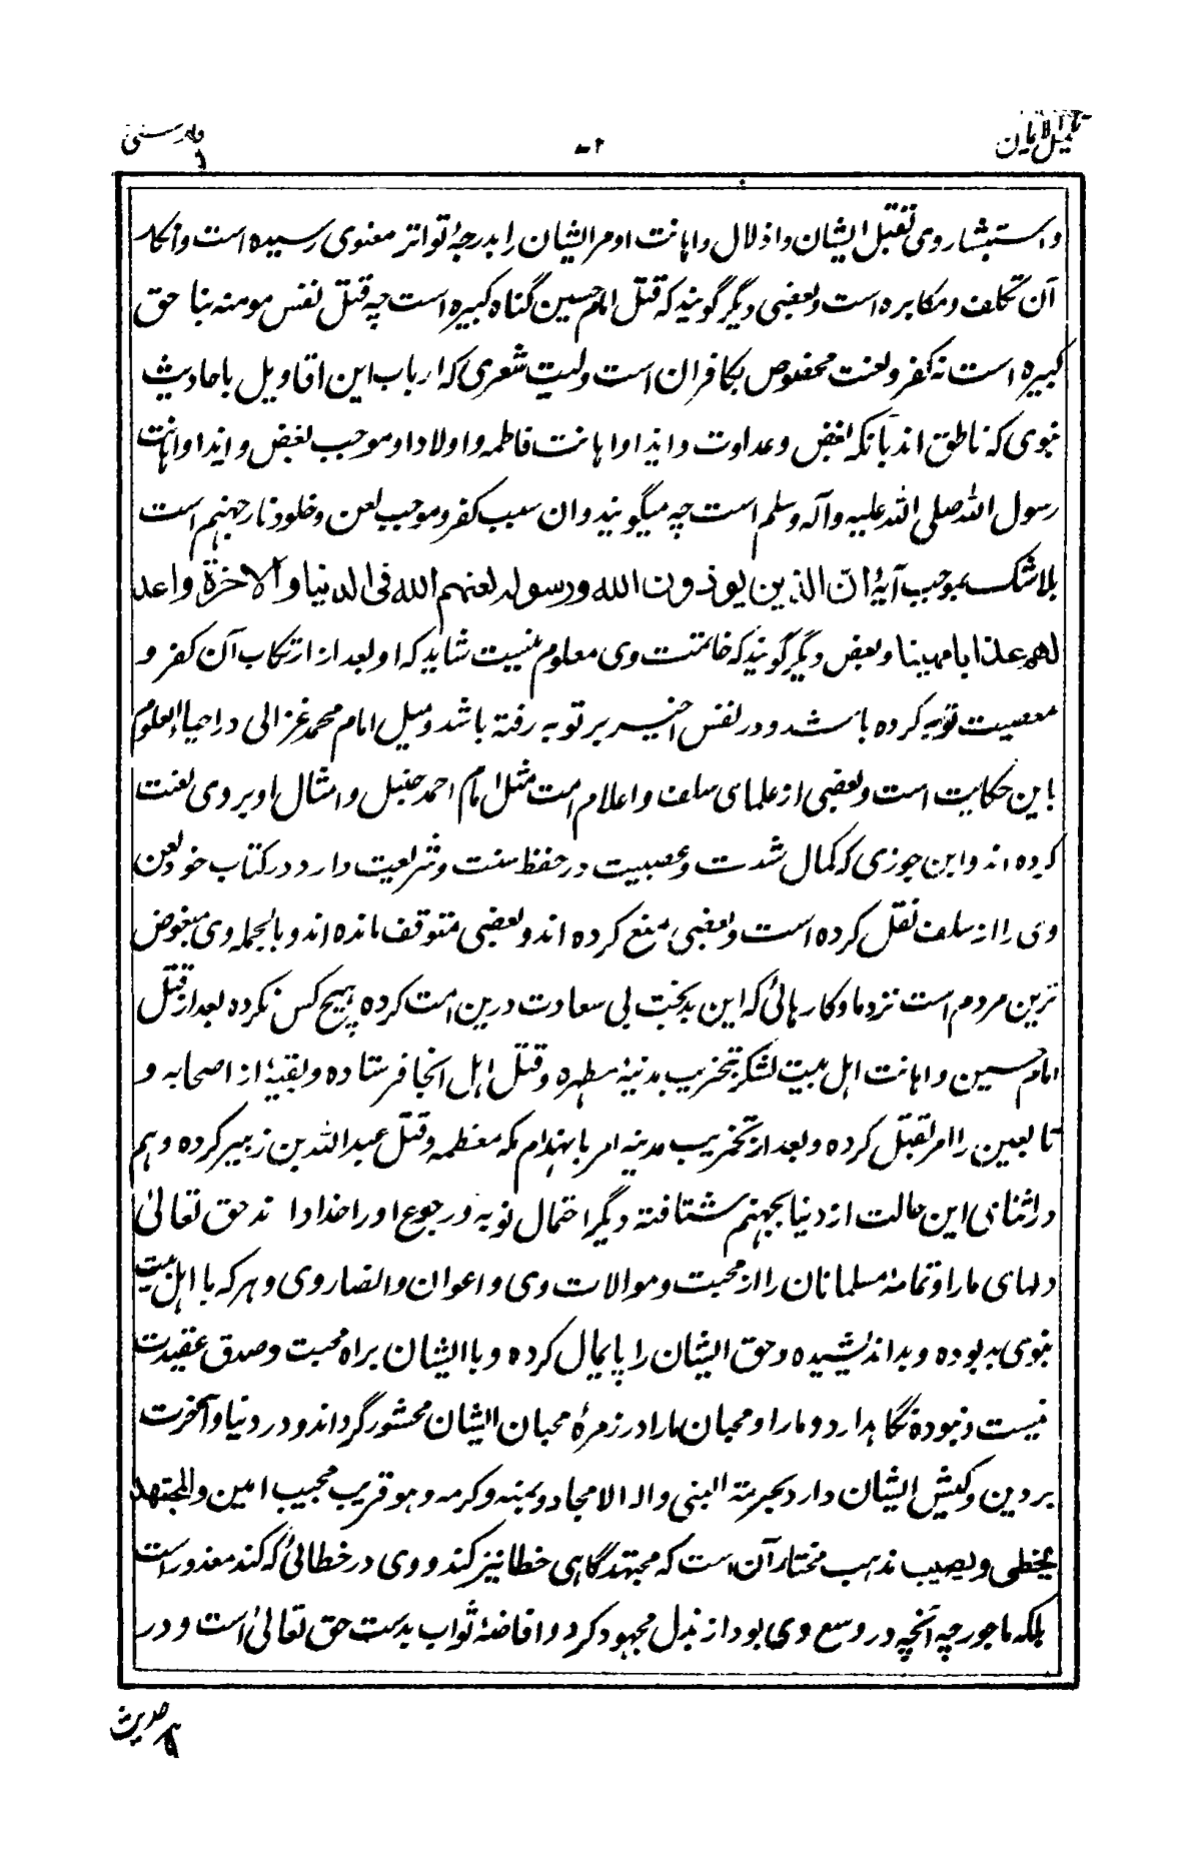 تکمیل الایمان
۷۲
واستبشار وی بقتل ایشان و اذلال و اهانت او مر ایشان را بدرجهٔ تواتر معنوی رسیده است و انکار
آن تکلف و مکابره است و بعضی دیگر گویند که قتل امام حسین گناه کبیره است چه قتل نفس مومنه بناحق
کبیره است نه کفر و لعنت مخصوص بکافران است و لیت شعری که ارباب این اقاویل باحادیث
نبوی که ناطق اند بآنکه بغض و عداوت و ایذا و اهانت فاطمه و اولاد او موجب بغض و ایذا و اهانت
رسول الله صلی الله علیه وآله وسلم است چه میگویند و ان سبب کفر و موجب لعن و خلود نار جهنم است
بلاشک بموجب آیۀ ان الذین یوذون الله ورسوله لعنهم الله فی الدنیا والاخرة واعد
لهم عذابا مهینا و بعض دیگر گویند که خاتمت وی معلوم نیست شاید که او بعد از ارتکاب آن کفر و
معصیت توبه کرده باشد و در نفس اخیر بر توبه رفته باشد و میل امام محمد غزالی در احیاء العلوم
باین حکایت است و بعضی از علمای سلف و اعلام امت مثل امام احمد حنبل و امثال او بر وی لعنت
کرده اند و ابن جوزی که کمال شدت و عصبیت در حفظ سنت و شریعت دارد در کتاب خود لعن
وی را از سلف نقل کرده است و بعضی منع کرده اند و بعضی متوقف مانده اند و بالجمله وی مبغوض
ترین مردم است نزد ما و کارهائی که این بدبخت بی سعادت درین امت کرده هیچ کس نکرده بعد از قتل
امام حسین و اهانت اهل بیت لشکر بتخریب مدینۀ مطهره و قتل اهل آنجا فرستاده و بقیۀ از اصحابه و
تابعین را امر بقتل کرده و بعد از تخریب مدینه امر بانهدام مکه معظمه و قتل عبدالله بن زبیر کرده و هم
در اثنای این حالت از دنیا بجهنم شتافته دیگر احتمال توبه و رجوع او را خدا داند حق تعالیٰ
دلهای ما را و تمامۀ مسلمانان را از محبت و موالات وی و اعوان و انصار وی و هر که با اهل بیت
نبوی بد بوده و بد اندیشیده و حق ایشان را پایمال کرده و با ایشان براه محبت و صدق عقیدت
نیست و نبوده نگاهدارد و ما را و محبان ما را در زمرۀ محبان ایشان محشور گرداند و در دنیا و آخرت
بر دین و کیش ایشان دارد بحرمة النبی واله الامجاد و بمنه وکرمه وهو قریب مجیب امین والمجتهد
یخطی ویصیب مذهب مختار آن است که مجتهد گاهی خطا نیز کند و وی در خطائی که کند معذور است
بلکه ماجور چه آنچه در وسع وی بود از بذل مجهود کرد و افاضۀ ثواب بدست حق تعالیٰ است و در
حدیث